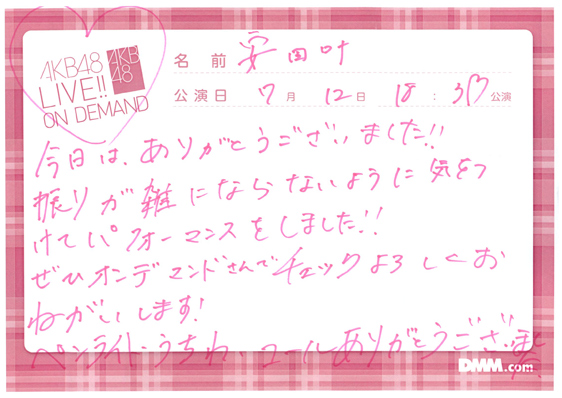 AKB48
LIVE!!
ON DEMAND
AKB
48
名前 安田叶
公演日 7月 12日 18:30 公演
今日は、ありがとうございました!!
振りが雑にならないように気をつ
けてパフォーマンスをしました!!
ぜひオンデマンドさんでチェックよろしくお
ねがいします!
ペンライト、うちわ、コールありがとうございました
DMM.com